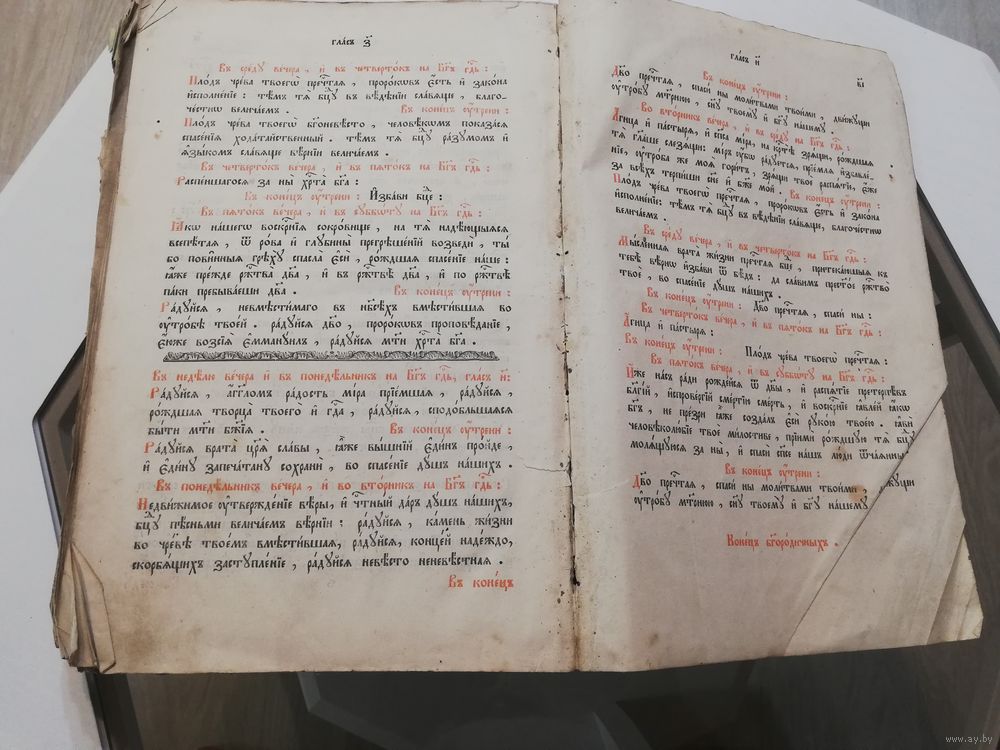 гла́съ з҃
Въ сре́дꙋ ве́чера , и҆ въ четверто́къ на Бг҃ъ гдⷭ҇ь :
Пло́дъ чре́ва твоегѡ̀ пречⷭ҇таѧ , проро́кѡвъ є҆́сть и҆ зако́на
и҆сполне́нїе . тѣ́мъ тѧ̀ бцⷣꙋ въ вѣ́дѣнїи сла́вѧще , благо-
че́стнѡ велича́емъ . Въ коне́цъ ᲂу҆́трени :
Пло́дъ чре́ва твоегѡ̀ бг҃оневѣ́сто , человѣ́кѡмъ показа́сѧ
спасе́нїѧ хода́тайственный . тѣ́мъ тѧ̀ бцⷣꙋ ра́зꙋмомъ и҆
ꙗ҆зы́комъ сла́вѧще вѣ́рнїи велича́емъ .
Въ четверто́къ ве́чера , и҆ въ пѧто́къ на Бг҃ъ гдⷭ҇ь :
Распе́ншагосѧ за ны̀ хрⷭ҇та̀ бг҃а :
Въ коне́цъ ᲂу҆́трени : И҆зба́ви бцⷣе :
Въ пѧто́къ ве́чера , и҆ въ сꙋббѡ́тꙋ на Бг҃ъ гдⷭ҇ь :
Ꙗ҆́кѡ на́шегѡ воскрⷭ҇нїѧ сокро́вище , на тѧ̀ надѣ́ющыѧсѧ
всепѣ́таѧ , ѿ ро́ва и҆ глꙋбины̀ прегрѣше́нїй возведѝ , ты̀
бо пови́нныѧ грѣхꙋ̀ спасла̀ є҆сѝ , ро́ждшаѧ спасе́нїе на́ше :
ꙗ҆́же пре́жде ржⷭ҇тва̀ дв҃а , и҆ въ ржⷭ҇твѣ̀ дв҃а , и҆ по ржⷭ҇твѣ̀
па́ки пребыва́еши дв҃а . Въ коне́цъ ᲂу҆́трени :
Ра́дꙋйсѧ , невмѣсти́маго въ нб҃сѣ́хъ вмѣсти́вшаѧ во
ᲂу҆тро́бѣ твое́й . ра́дꙋйсѧ дв҃о , проро́кѡвъ проповѣ́данїе ,
є҆́юже возсїѧ̀ є҆мманꙋ́илъ , ра́дꙋйсѧ мт҃и хрⷭ҇та̀ бг҃а .
Въ недѣ́лю ве́чера и҆ въ понедѣ́льникъ на Бг҃ъ гдⷭ҇ь, гла́съ и҃:
Ра́дꙋйсѧ , а҆́гг҃ломъ ра́дость мі́ра прїе́мшаѧ , ра́дꙋйсѧ ,
ро́ждшаѧ творца̀ твоего̀ и҆ гдⷭ҇а , ра́дꙋйсѧ , сподо́бльшаѧсѧ
бы́ти мт҃и бж҃їѧ . Въ коне́цъ ᲂу҆́трени :
Ра́дꙋйсѧ врата̀ цр҃ѧ̀ сла́вы , ꙗ҆́же вы́шнїй є҆ди́нъ про́йде ,
и҆ є҆ди́нꙋ запеча́танꙋ сохранѝ , во спасе́нїе дꙋ́шъ на́шихъ .
Въ понедѣ́льникъ ве́чера , и҆ во вто́рникъ на Бг҃ъ гдⷭ҇ь :
Недви́жимое ᲂу҆твержде́нїе вѣ́ры, и҆ чтⷭ҇ный да́ръ дꙋ́шъ на́шихъ,
бцⷣꙋ пѣ́сньми велича́емъ вѣ́рнїи : ра́дꙋйсѧ , ка́мень жи́зни
во чре́вѣ твое́мъ вмѣсти́вшаѧ, ра́дꙋйсѧ, конце́й наде́ждо,
скорбѧ́щихъ застꙋпле́нїе , ра́дꙋйсѧ невѣ́сто неневѣ́стнаѧ .
Въ коне́цъ
гла́съ и҃
Въ коне́цъ ᲂу҆́трени :
Дв҃о пречⷭ҇таѧ , спасѝ ны̀ моли́твами твои́ми , дви́жꙋщи
ᲂу҆тро́бꙋ мт҃рнюю , сн҃ꙋ твоемꙋ̀ и҆ бг҃ꙋ на́шемꙋ .
Во вто́рникъ ве́чера , и҆ въ сре́дꙋ на Бг҃ъ гдⷭ҇ь :
А҆́гнца и҆ па́стырѧ, и҆ сп҃са мі́ра, на крⷭ҇тѣ̀ зрѧ́щи, ро́ждшаѧ
тѧ̀ гл҃аше слезѧ́щи: мі́ръ ᲂу҆́бѡ ра́дꙋетсѧ, прїе́млѧ и҆збавле́-
нїе, ᲂу҆тро́ба же моѧ̀ гори́тъ , зрѧ́щи твоѐ распѧ́тїе , є҆́же
за всѣ́хъ терпи́ши сн҃е и҆ бж҃е мо́й . Въ коне́цъ ᲂу҆́трени :
Пло́дъ чре́ва твоегѡ̀ пречⷭ҇таѧ , проро́кѡвъ є҆́сть и҆ зако́на
и҆сполне́нїе: тѣ́мъ тѧ̀ бцⷣꙋ въ вѣ́дѣнїи сла́вѧще, благоче́стнѡ
велича́емъ .
Въ сре́дꙋ ве́чера , и҆ въ четверто́къ на Бг҃ъ гдⷭ҇ь :
Мы́сленнаѧ врата̀ жи́зни пречⷭ҇таѧ бцⷣе , притека́ющыѧ къ
тебѣ̀ вѣ́рнѡ и҆зба́ви ѿ бѣ́дъ : да сла́вимъ прест҃о́е ржⷭ҇тво̀
твоѐ , во спасе́нїе дꙋ́шъ на́шихъ .
Въ коне́цъ ᲂу҆́трени : Дв҃о пречⷭ҇таѧ , спасѝ ны̀ :
Въ четверто́къ ве́чера , и҆ въ пѧто́къ на Бг҃ъ гдⷭ҇ь :
А҆́гнца и҆ па́стырѧ :
Въ коне́цъ ᲂу҆́трени : Пло́дъ чре́ва твоегѡ̀ пречⷭ҇таѧ :
Въ пѧто́къ ве́чера , и҆ въ сꙋббѡ́тꙋ на Бг҃ъ гдⷭ҇ь :
И҆́же на́съ ра́ди рожде́йсѧ ѿ дв҃ы , и҆ распѧ́тїе претерпѣ́въ
бл҃гі́й , и҆спрове́ргїй сме́ртїю сме́рть , и҆ воскрⷭ҇нїе ꙗ҆вле́й ꙗ҆́кѡ
бг҃ъ , не пре́зри ꙗ҆̀же созда́лъ є҆сѝ рꙋко́ю твое́ю . ꙗ҆вѝ
человѣколю́бїе твоѐ ми́лостиве , прїимѝ ро́ждшꙋю тѧ̀ бцⷣꙋ
молѧ́щꙋюсѧ за ны̀ , и҆ спасѝ сп҃се на́шъ лю́ди ѿча́ѧнныѧ
Въ коне́цъ ᲂу҆́трени :
Дв҃о пречⷭ҇таѧ , спасѝ ны̀ моли́твами твои́ми , жꙋщи
ᲂу҆тро́бꙋ мт҃рнюю , сн҃ꙋ твоемꙋ̀ и҆ бг҃ꙋ на́шемꙋ
Коне́цъ бг҃оро́дичныхъ .
www.ay.by